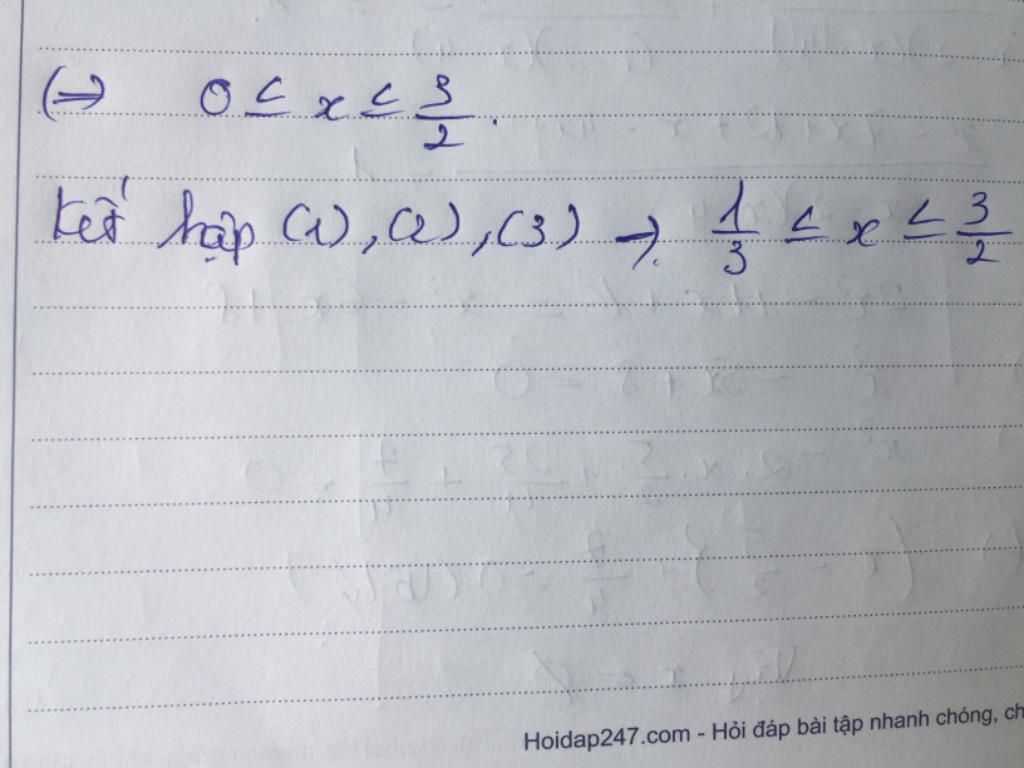 (=> 0 ≤ x ≤ 3/2.
Kết hợp (1), (2), (3) → 1/3 ≤ x ≤ 3/2
Hoidap247.com - Hỏi đáp bài tập nhanh chóng, ch